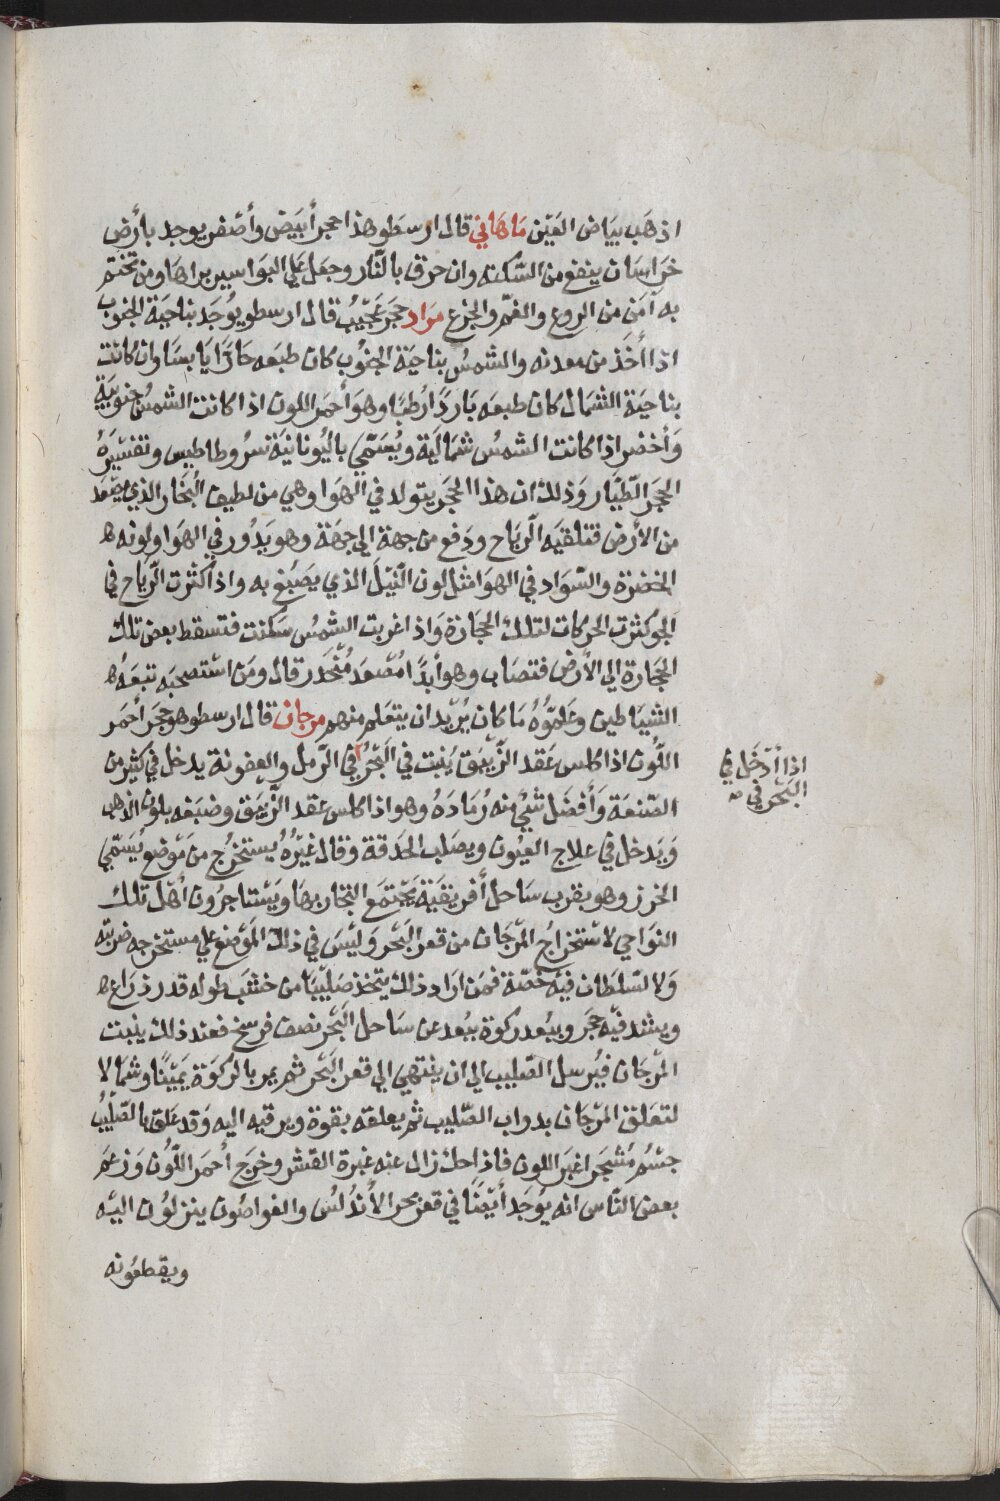 اذهَب بيَاض العَيْن مَاهَاني قال ارسطو هذا حجر أبيَض وأصْفر يوجد بأرض
خرَاسَان ينفع من السّكته وان حرق بالنّار وجعل علي البوَاسير براهَا ومن تختم
به أمن من الروع والغمّ والجزع مرَاد حجَر عَجيْبٌ قال ارسطو يُوجَد بناحيَة الجنوب
اذا أُخَذ من معدنه والشمسُ بناحيَة الجنُوب كان طبعَه حَارًّا يَابسَا وان كانت
بناحيَة الشمال كان طبعَه بَاردًا رُطبًا وهوَ أحمَر اللون اذا كانت الشمسُ جنوبيَة
وَأخضر اذا كانت الشمسُ شمَاليَة ويُسَمّي باليُونانيَة نسرُوطاطيس وتفسْيرَهُ
الحجَر الطّيَار وَذلك ان هذا الحجَر يتولد في الهَوا وهي من لطيف البُخَار الذي يصْعَد
من الأرض فتلقيَه الرّيَاح ودَفع من جهة الي جهَة وهو يَدُور في الهَوا ولونه
الخضرَة والسّوَاد في الهوَا مثل لون النّيْل الذي يصَبُغ به واذ اكثرت الرّيَاح في
الجَو كثرت الحركات لتلك الحجَارَة وَاذا غربت الشمسُ سَكنت فتسقط بعض تلك
الحجَارة الي الأرض فتصَاب وهو أبدًا مُصَّعَد مُنْحَدر قال ومَن اسْتصحبَه تبعَهُ
الشيَاطين وعَلموُهُ مَا كان يُريْد ان يتعَلم منهم مرجان قال ارسطو هو حجَر أحمَر
اللوُن اذا كلس عَقد الزّيبَق يُنبت في البَحْر في الرّمل والعفونة يدخل في كثير من
اذا أدْخَل في
البَحْر في
الصّنعَة وَأفضَل شيْيٌ منه رُمَادَهُ وهو اذا كلس عقد الزّيبَق وضبَغه بلون الذهب
وَيَدخل في علاج العيُون ويصَلب الحدَقة وقال غيْرُهُ يستخرُج من مَوْضع يُسَمّي
الخرز وهو بقرب سَاحل أفريقيَة يَجْتمَع التجار بهَا ويَسْتأجرُون أهْل تلك
النوَاحي لاسْتخرَاجُ المرْجَان من قعر البَحْر وَليْسَ في ذلك المَوْضع علي مستخرجه ضريبَه
وَلا لسّلطَان فيْه خصّة فمن ارَاد ذلك يتخذ صَليْبَا من خشَب طوله قدر ذرَاع
ويشد فيْه حجَر وبيُعد ركوة ببُعد عن سَاحل البَحْر نصف فرسخ فعند ذلك ينبت
المرْجَان فيُرسل الصّليب الي ان ينتهي الي قعر البَحْر ثم يمر بالركوَة يَميْنًا وشمالا
لتعَلق المرْجَان بدواب الصّليب ثم يعلقه بقوة ويرقيه اليه وَقد عَلق بالصّليْبُ
جسْمٌ مُشجَر اغبَر اللون فاذا حك زال عنه غبرة القشر وخرَج أحمَر اللّوُن وَزعَم
بعض النّاس انه يُوجَد أيْضًا في قعر بحر الأندُلسُ والغواصُون ينزلوُن اليْه
ويقطعُونه